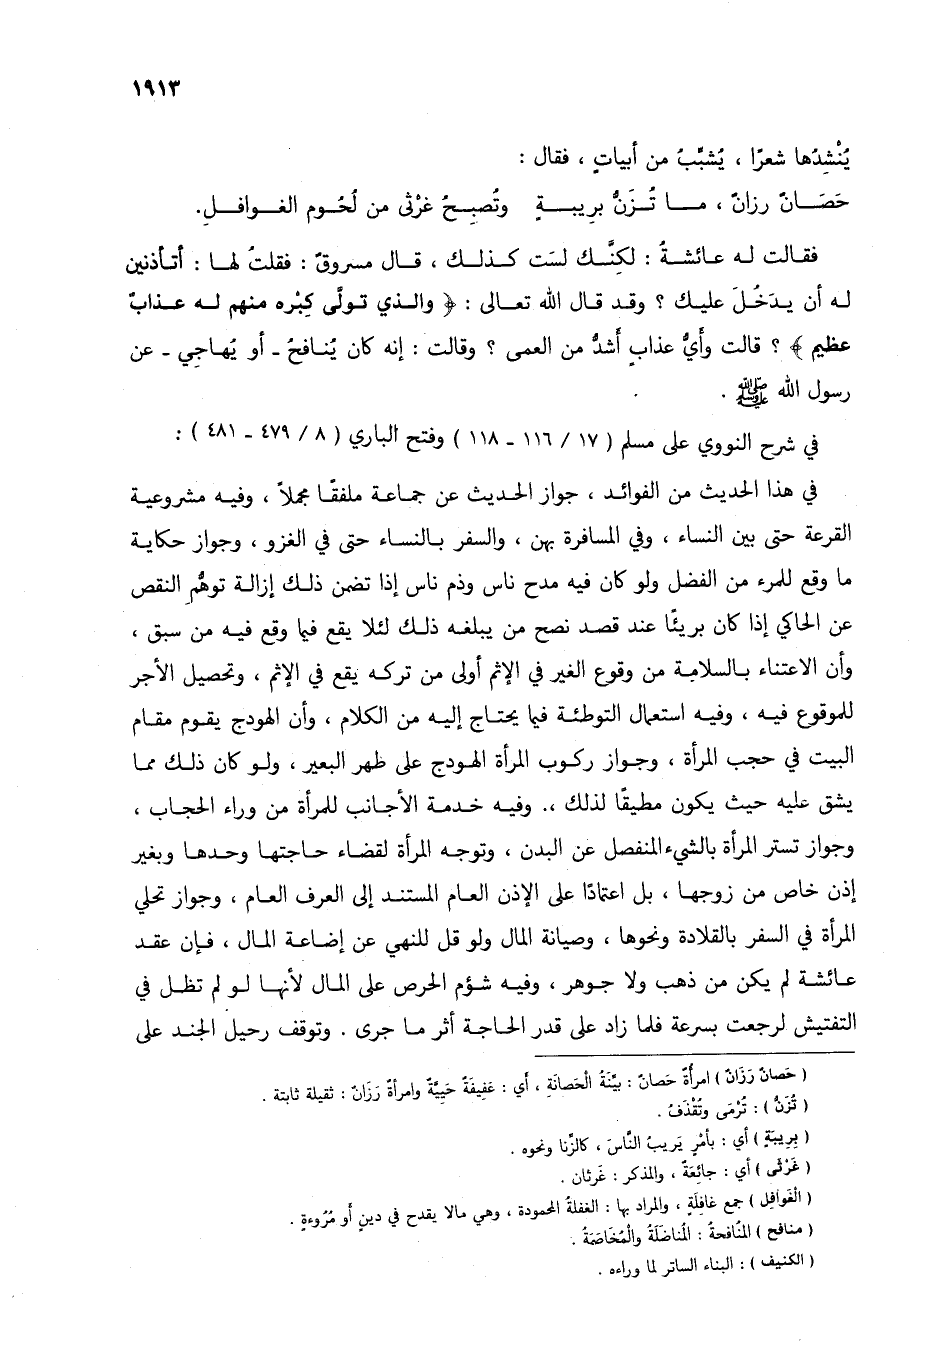 ١٩١٣
يُنْشِدُها شعرًا ، يُشَبِّبُ من أبياتٍ ، فقال :
حَصَـــانٌ رزانٌ ، مـــا تُــزَنُّ بريبـــةٍ وتُصبــحُ غَرْثى من لُحُوم الغــوافــلِ.
فقـالت لـه عـائشـةُ : لكنَّـك لستَ كـذلـك ، قـال مسروقٌ : فقلتُ لهـا : أتـأذنين
لـه أن يـدَخُـلَ عليـك ؟ وقـد قـال الله تعـالى : ﴿ والـذي تـولَّى كِبْره منهم لـه عـذابٌ
عظيم ﴾ ؟ قالت وأيُّ عذابٍ أشدُّ من العمى ؟ وقالت : إنه كان يُنـافحُ ـ أو يُهـاجي ـ عن
رسول الله ﷺ .
في شرح النووي على مسلم ( ١٧ / ١١٦ - ١١٨ ) وفتح الباري ( ٨ / ٤٧٩ - ٤٨١ ) :
في هذا الحديث من الفوائـد ، جواز الحـديث عن جمـاعـة ملفقًـا مجملاً ، وفيـه مشروعيـة
القرعة حتى بين النساء ، وفي المسافرة بهن ، والسفر بـالنسـاء حتى في الغزو ، وجواز حكايـة
ما وقع للمرء من الفضل ولو كان فيه مدح ناس وذم ناس إذا تضمن ذلـك إزالـة توهُّمِ النقص
عن الحاكي إذا كان بريئًا عند قصد نصح من يبلغـه ذلـك لئلا يقع فيما وقع فيـه من سبق ،
وأن الاعتناء بـالسلامـة من وقوع الغير في الإثم أولى من تركـه يقع في الإثم ، وتحصيل الأجر
للموقوع فيـه ، وفيـه استعمال التوطئـة فيما يحتـاج إليـه من الكلام ، وأن الهودج يقـوم مقـام
البيت في حجب المرأة ، وجـواز ركـوب المرأة الهـودج على ظهر البعير ، ولـو كان ذلـك ممـا
يشق عليه حيث يكون مطيقًا لذلك ،. وفيـه خـدمـة الأجـانب للمرأة من وراء الحجـاب ،
وجواز تستر المرأة بالشيء المنفصل عن البدن ، وتوجـه المرأة لقضـاء حـاجتهـا وحـدهـا وبغير
إذن خاص من زوجهـا ، بل اعتمادًا على الإذن العـام المستنـد إلى العرف العـام ، وجواز تحلي
المرأة في السفر بالقلادة ونحوها ، وصيانة المال ولو قل للنهي عن إضـاعـة المـال ، فـإن عقـد
عـائشـة لم يكن من ذهب ولا جـوهر ، وفيـه شـؤم الحرص على المـال لأنهـا لـو لم تطـل في
التفتيش لرجعت بسرعة فلما زاد على قدر الحـاجـة أثر مـا جرى . وتوقف رحيل الجنـد على
( حَصانٌ رَزَانٌ ) امرأةٌ حَصان : بَيِّنَةُ الحَصانَةِ ، أي : عَفِيفَةٌ حَيِيَّةٌ وامرأةٌ رَزَانٌ : ثقيلة ثابتة .
( تُزَنُّ ) : تُرْمَى وتُقْذَفُ .
( بِريبَةٍ ) أي : بأمْرٍ يَريبُ النَّاسَ ، كالزِّنا ونحوه .
( غَرْثَى ) أي : جائِعَةٌ ، والمذكر : غَرثان .
( الْغَوافِل ) جمع غافِلَةٍ ، والمراد بها : الغفلةُ المحمودة ، وهي مالا يقدح في دينٍ أو مُرُوءةٍ .
( منافح ) المُنافحةُ : المُناضَلَةُ والْمُخَاصَمَةُ .
( الكنيف ) : البناء الساتر لما وراءه .